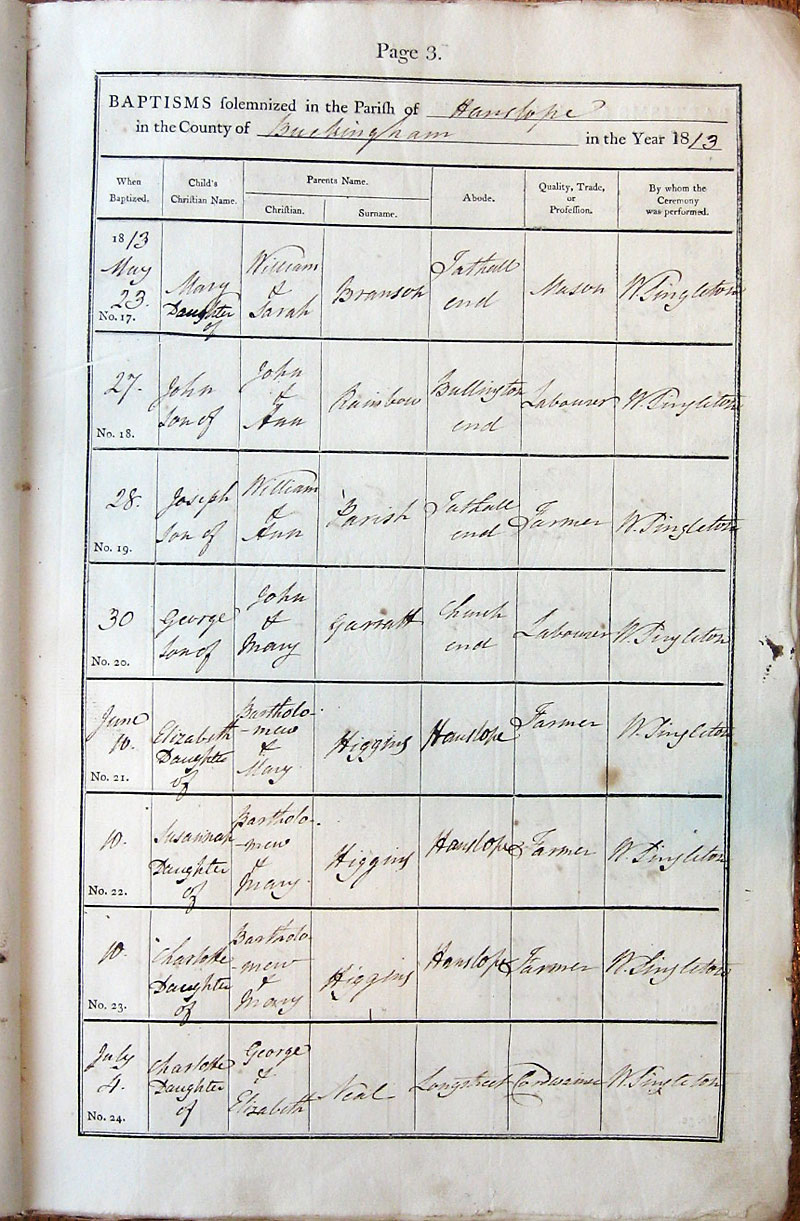 Page 3.
BAPTISMS solemnized in the Parish of Hanslope
in the County of Buckingham in the Year 1813
When Baptized.
Child's Christian Name.
Parents Name.
Christian.
Surname.
Abode.
Quality, Trade, or Profession.
By whom the Ceremony was performed.
1813
May
23.
No. 17.
Mary
Daughter
of
William
&
Sarah
Branson
Tathall
end
Mason
W. Singleton
27.
No. 18.
John
Son of
John
&
Ann
Rainbow
Bullington
end
Labourer
W. Singleton
28.
No. 19.
Joseph
Son of
William
&
Ann
Parish
Tathall
end
Farmer
W. Singleton
30
No. 20.
George
Son of
John
&
Mary
Garratt
Church
end
Labourer
W. Singleton
June
10.
No. 21.
Elizabeth
Daughter
of
Bartholo-
-mew
&
Mary
Higgins
Hanslope
Farmer
W. Singleton
10.
No. 22.
Susannah
Daughter
of
Bartholo-
-mew
&
Mary
Higgins
Hanslope
Farmer
W. Singleton
10.
No. 23.
Charlotte
Daughter
of
Bartholo-
-mew
&
Mary
Higgins
Hanslope
Farmer
W. Singleton
July
4.
No. 24.
Charlotte
Daughter
of
George
&
Elizabeth
Neal
Longstreet
Cordwainer
W. Singleton